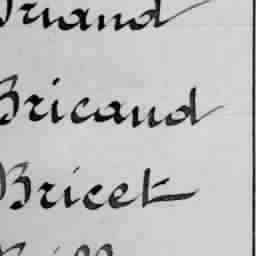 Briand
Bricaud
Bricet